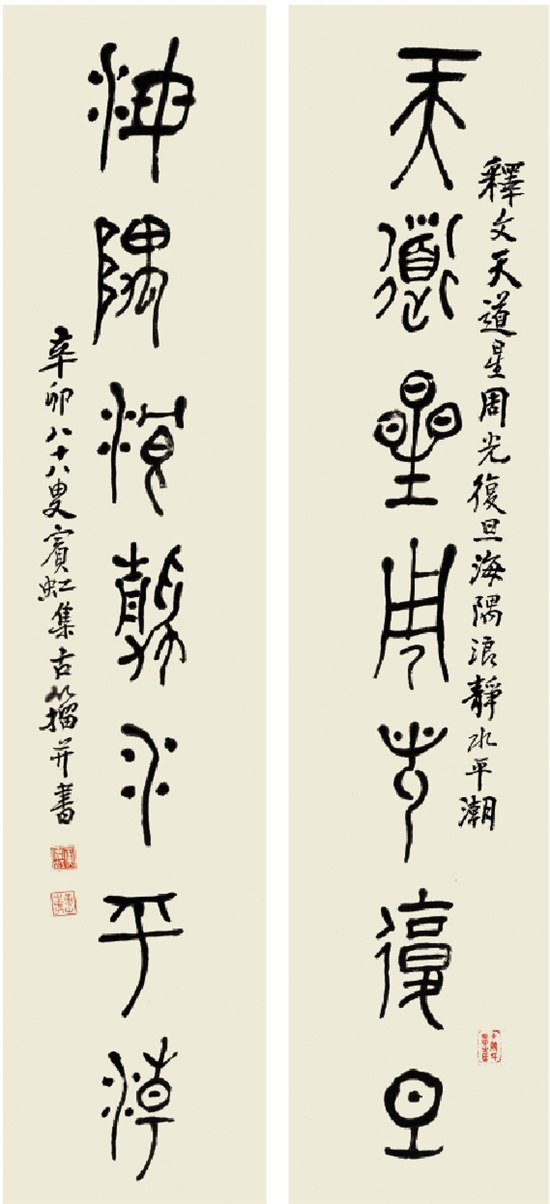 天道星周光復旦
釋文天道星周光復旦海隅浪靜水平潮
海隅浪靜水平潮
辛卯八十八叟賓虹集古籀并書